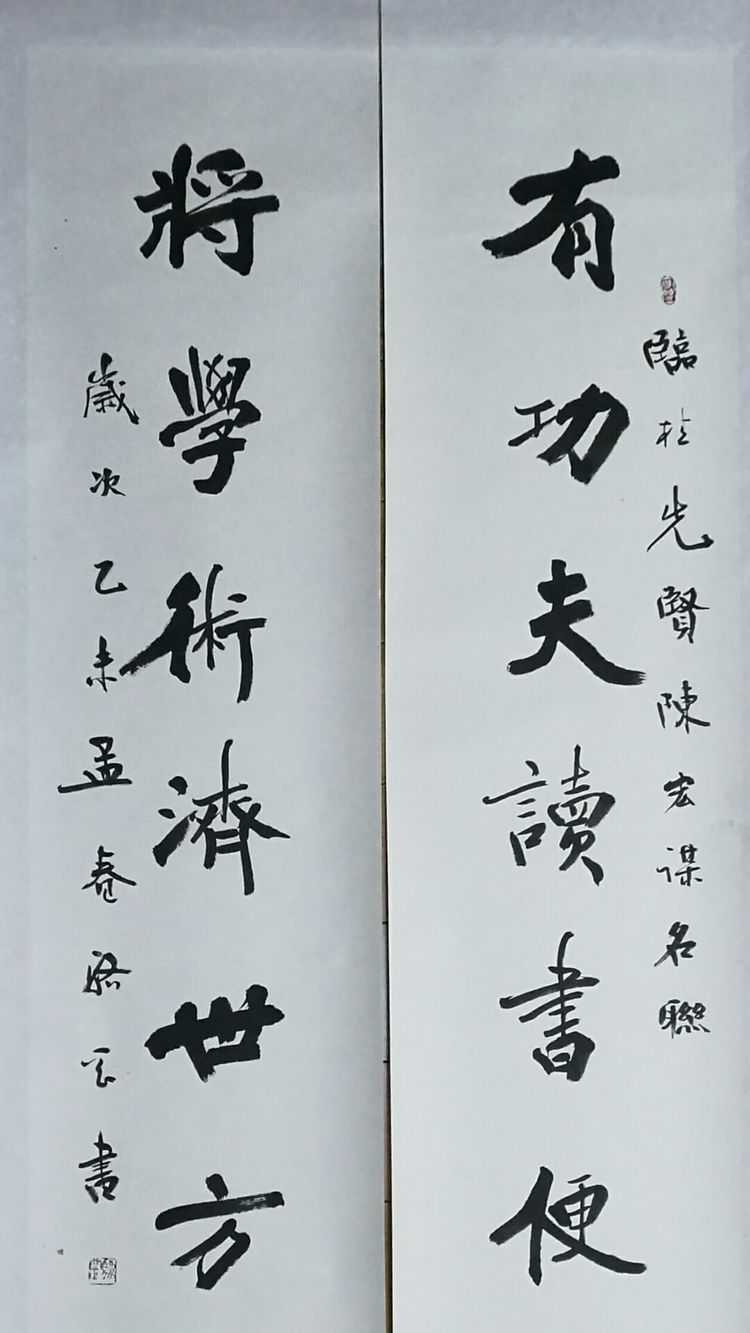 臨於先賢陳宏謀名聯
有功夫讀書便
將學術濟世方
歲次乙未孟春 書